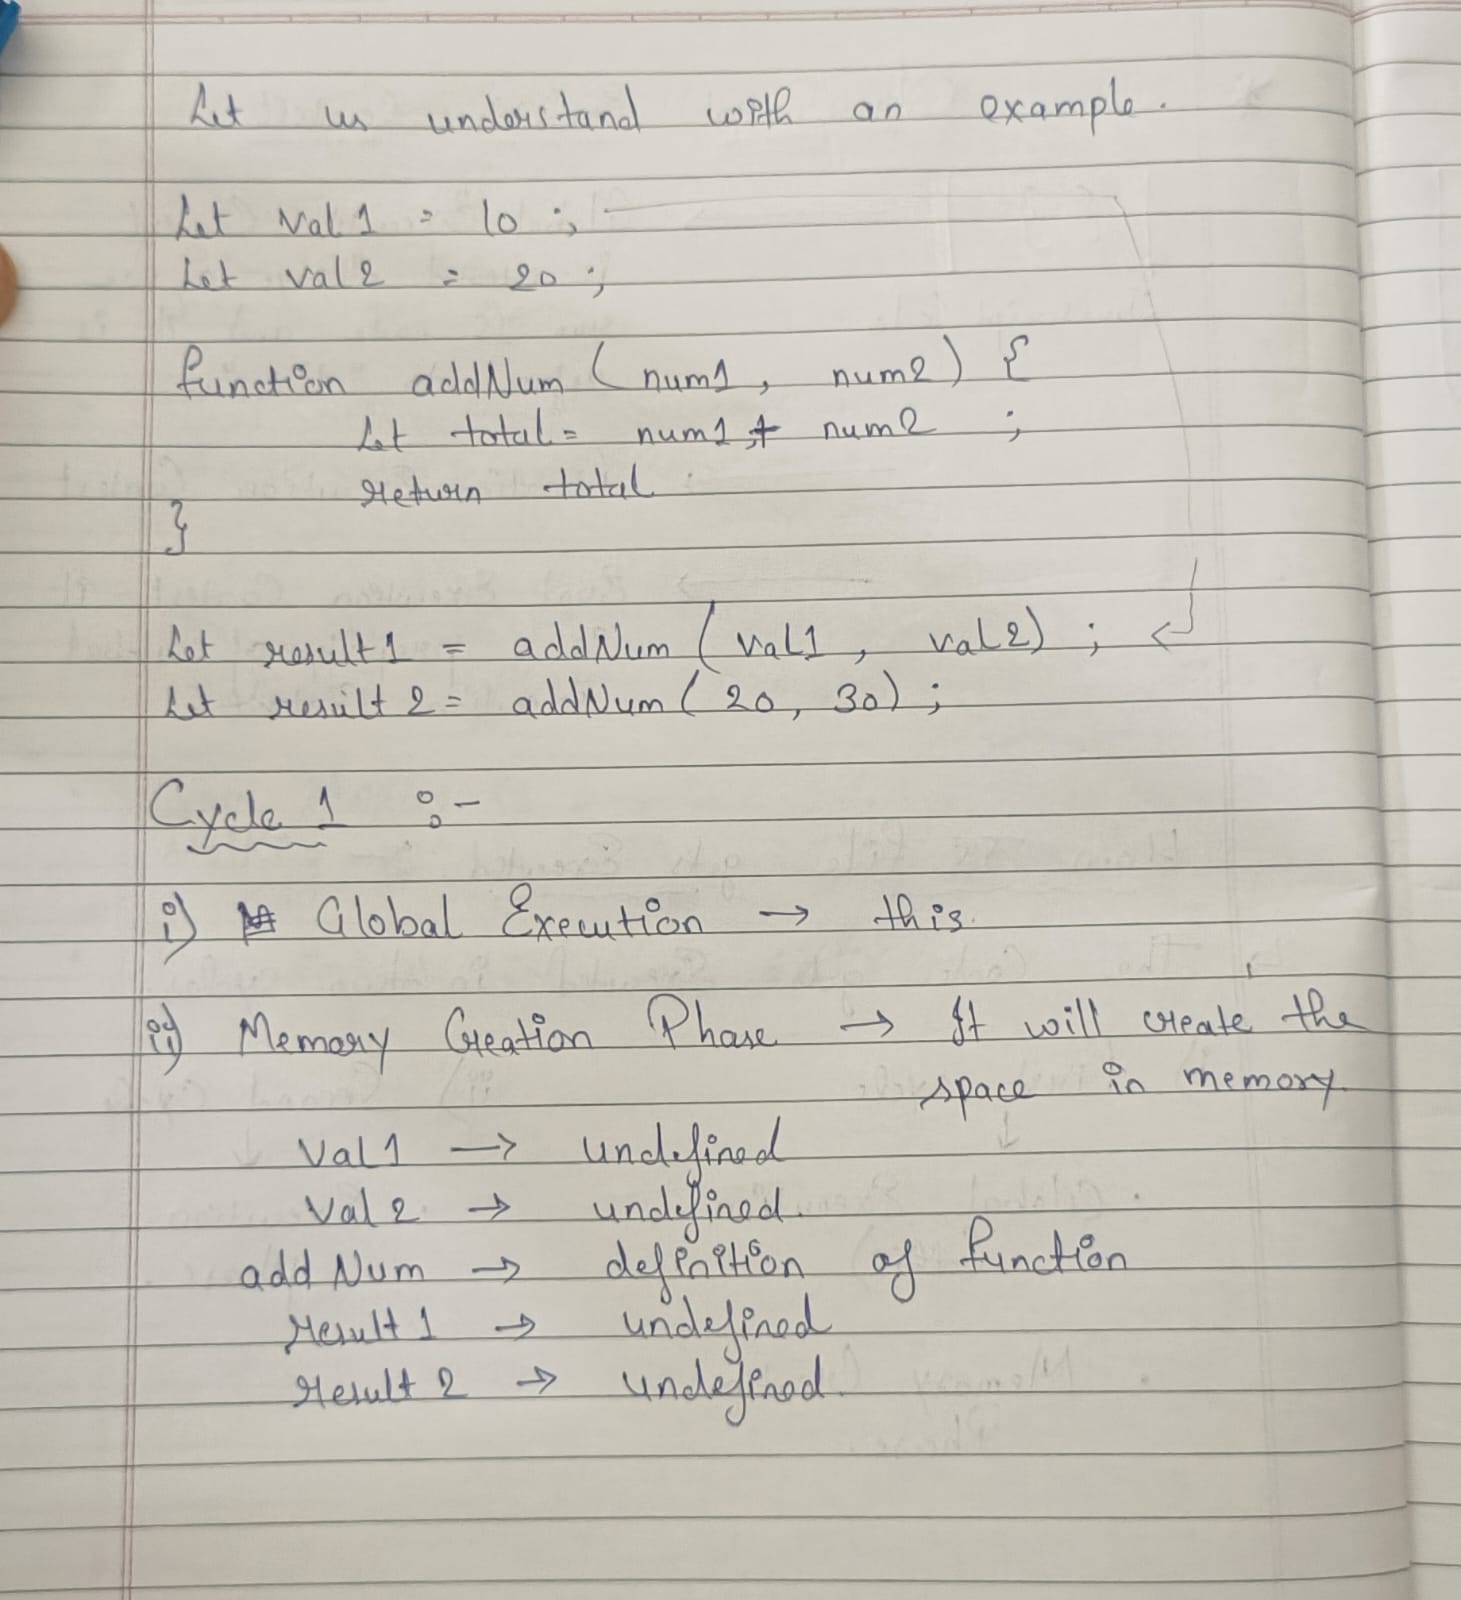 Let us understand with an example.
Let val1 = 10 ;
Let val2 = 20 ;
function addNum ( num1 , num2 ) {
Let total = num1 + num2 ;
return total
}
Let result1 = addNum ( val1 , val2 ) ;
Let result2 = addNum ( 20, 30 ) ;
Cycle 1 :-
i) Global Execution → this.
ii) Memory Creation Phase → It will create the
space in memory.
Val1 → undefined
Val2 → undefined.
addNum → definition of function
result1 → undefined
result2 → undefined.